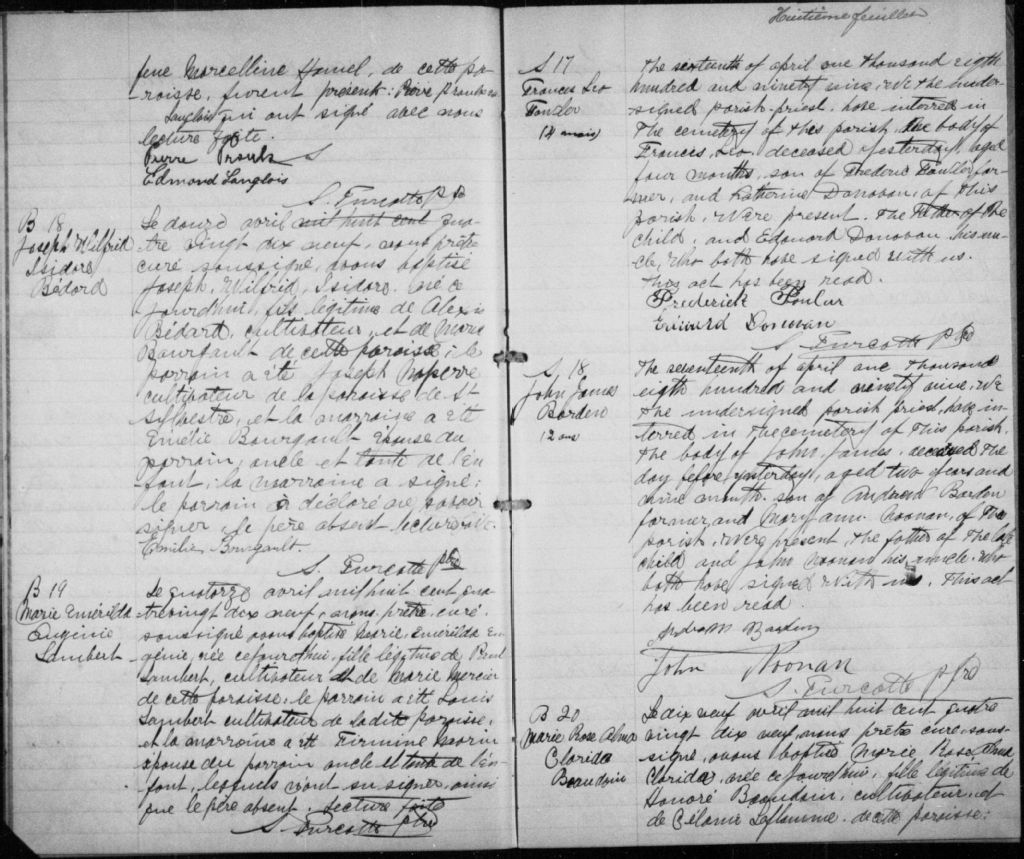 feue Marcelline Hamel, de cette pa-
roisse, furent présent: Pierre Proulx et
Langlois qui ont signé avec nous
lecture faite.
Pierre Proulx
Edmond Langlois
S. Turcotte ptre
B 18
Joseph Wilfrid
Isidore
Bédard
Le douze avril mil huit cent qua-
tre vingt dix neuf, nous prêtre
curé soussigné, avons baptisé
Joseph, Wilfrid, Isidore. né ce
jourd'hui, fils légitime de Alexis
Bédard, cultivateur, et de Marie
Bourgault de cette paroisse; le
parrain a été Joseph
cultivateur de la paroisse de St
Sylvestre, et la marraine a été
Emélie Bourgault épouse du
parrain, oncle et tante de l'en
fant; la marraine a signé;
le parrain a déclaré ne savoir
signer, le père absent, lecture faite.
Emilie Bourgault.
S. Turcotte ptre
B 19
Marie Emérilda
Eugénie
Lambert
Le quatorze avril mil huit cent qua-
trevingt dix neuf, nous prêtre curé.
soussigné avons baptisé Marie, Emérilda Eu
génie, née cejourd'hui, fille légitime de Paul
Lambert, cultivateur et de Marie Mercier
de cette paroisse: le parrain a été Louis
Lambert cultivateur de la dite paroisse,
et la marraine a été Firmine Morin
épouse du parrain oncle et tante de l'en-
fant, lesquels n'ont su signer, ainsi
que le père absent. Lecture faite
S. Turcotte ptre
Huitième feuillet
S 17
Frances Leo
Foulor
(4 mois)
The sixteenth of april one thousand eigth
hundred and ninety nine, We the under-
signed parish-priest. have interred in
The cemetery of this parish, the body of
Frances, Leo. deceased yesterday, aged
four months, son of Frederic Foulor far-
mer, and Katherine Donovan, of this
parish. Were present. The father of the
child; and Edouard Donovan his un-
cle, who both have signed with us.
This act has been read.
Frederick Foular
Edward Donovan
S. Turcotte ptre
S. 18
John James
Barden
12 ans
The seventeenth of april one thousand
eigth hundred and ninety nine, We
the undersigned parish priest, have in-
terred in the cemetery of this parish.
The body of John, James. deceased the
day before yesterday, aged two years and
nine month. son of Andrew Barden
farmer, and Mary ann. Noonan, of the
parish, Were present, the father of the
child and John Noonan his uncle. Who
both have signed With us. This act
has been read.
Barden
John Noonan
S. Turcotte ptre
B 20
Marie Rose Alma
Clorida
Beaudoin
Le dix neuf avril mil huit cent quatre
vingt dix neuf, nous prêtre curé, sous-
signé, avons baptisé Marie Rose, Alma
Clorida, née cejourd'hui, fille légitime de
Honoré Beaudoin, cultivateur, et
de Célanie Laflamme. de cette paroisse: